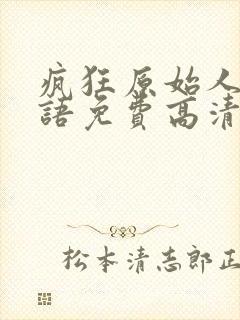 疯狂原始人
語免費高清
松本清志郎正